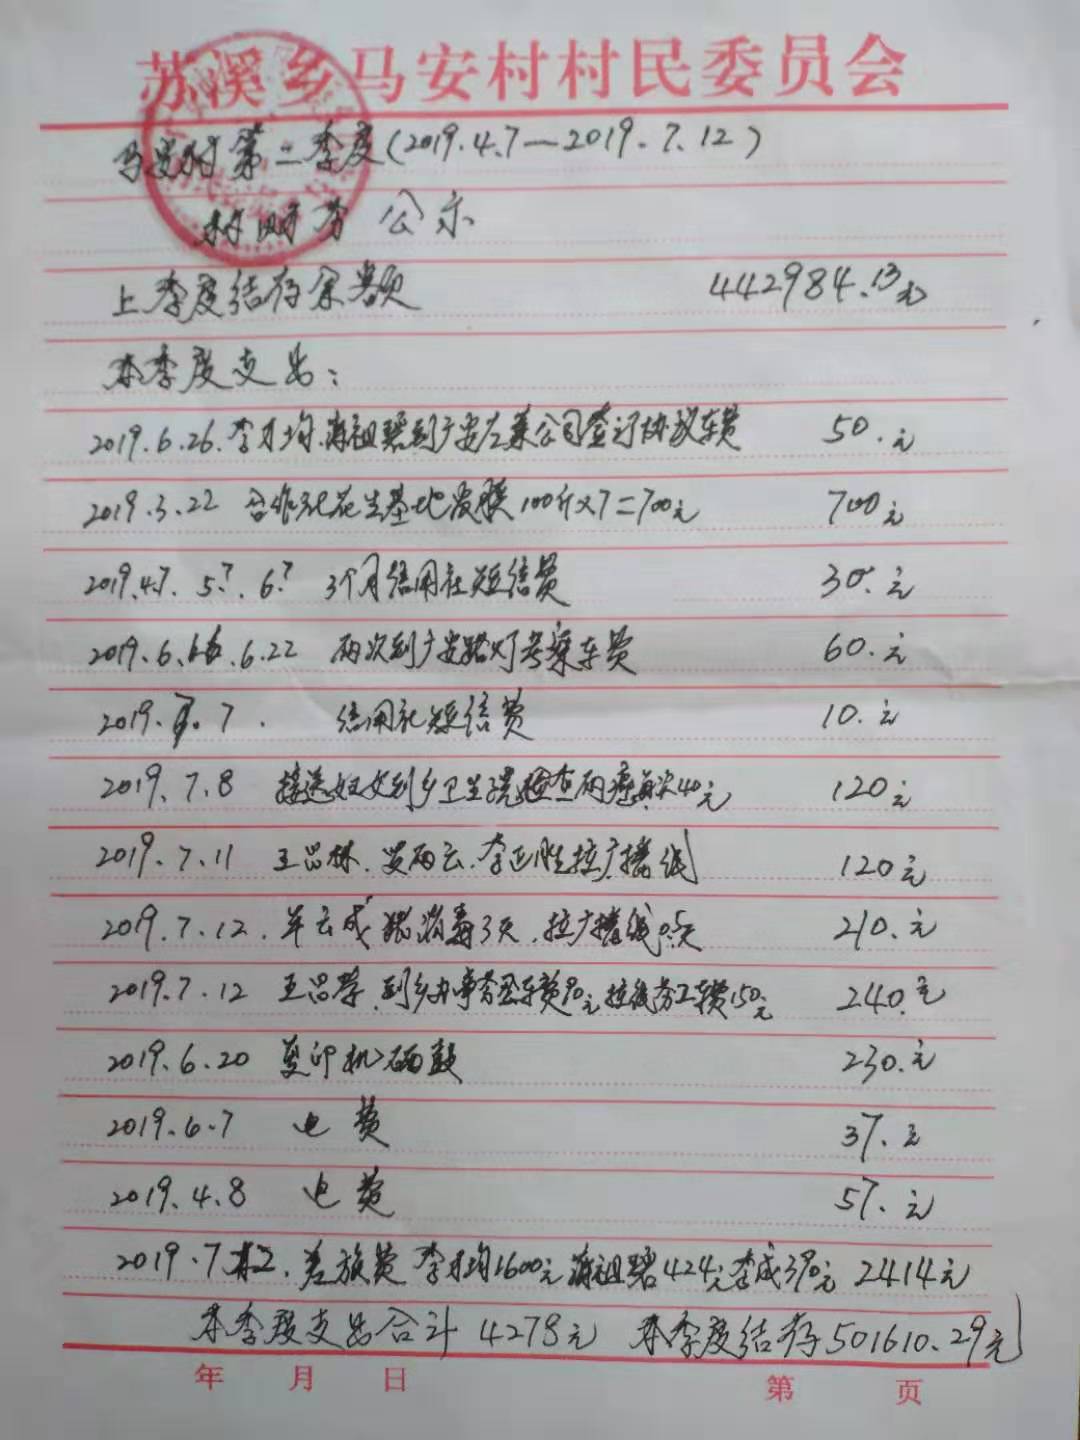 苏溪乡马安村村民委员会
马安村第二季度(2019.4.7—2019.7.12)
村财务公示
上季度结存余额 442984.13元
本季度支出:
2019.6.26.李才均.蒋祖碧到广安左菜公司签订协议车费 50.元
2019.3.22 合作社花生基地发膜100斤×7=700元 700元
2019.4.7. 5.7. 6.7 3个月信用社短信费 30.元
2019.6.16.6.22 两次到广安路灯考察车费 60.元
2019.7.7. 信用社短信费 10.元
2019.7.8 接送妇女到乡卫生院检查两癌每次40元 120元
2019.7.11 王昌林.安丙云.李正胜拉广播线 120元
2019.7.12.羊云成 猪消毒3天.拉广播线0.5天 210.元
2019.7.12 王昌荣.到乡办事务租车费90元拉线劳工车费150元 240.元
2019.6.20 复印机硒鼓 230.元
2019.6.7 电费 37.元
2019.4.8 电费 57.元
2019.7.12.差旅费 李才均1600元蒋祖碧424元李成390元 2414元
本季度支出合计4278元 本季度结存501610.29元
年 月 日 第 页